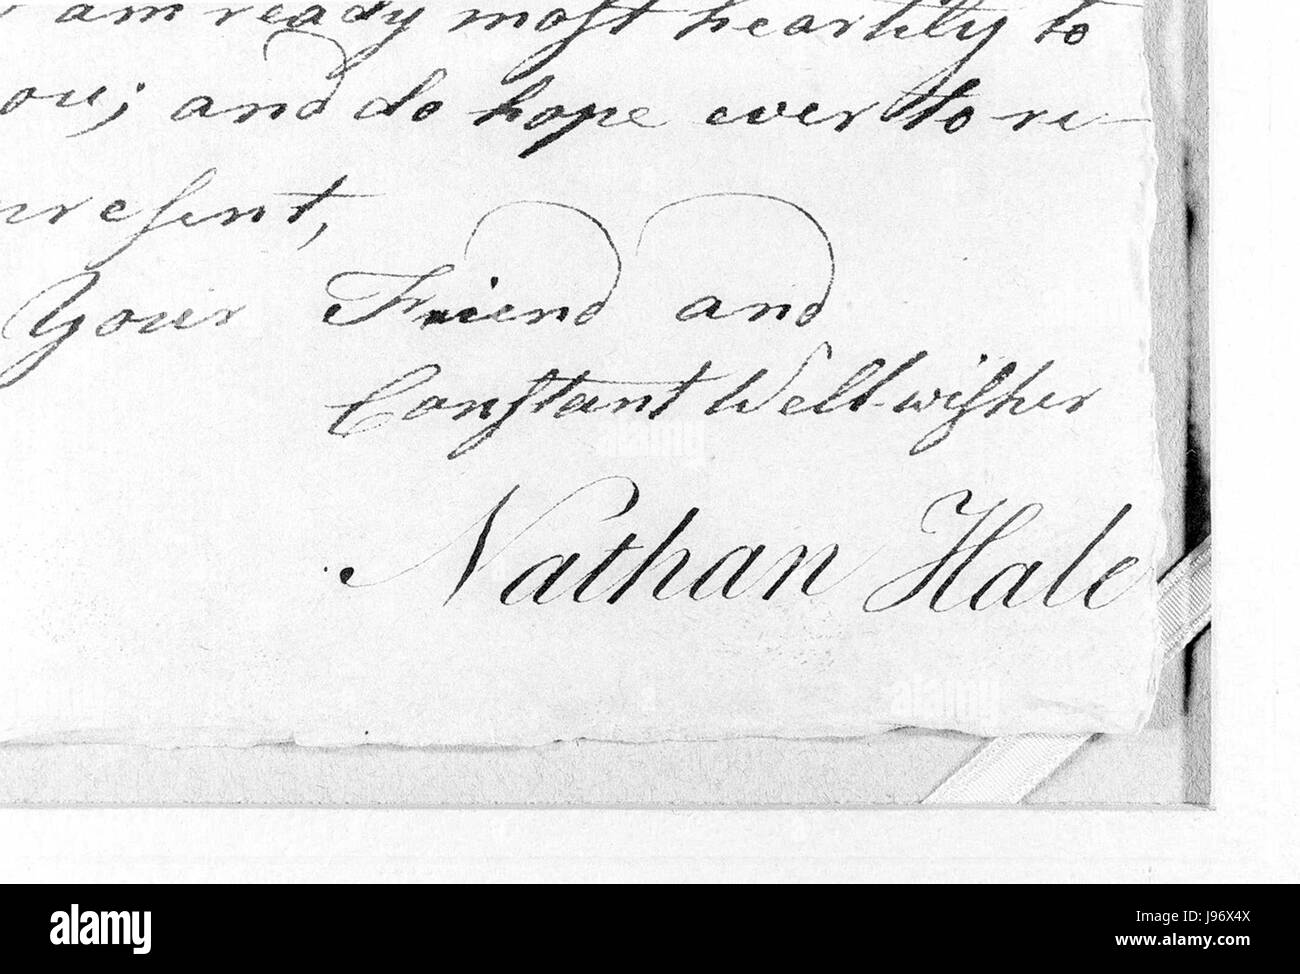 am ready moſt heartily to
ou; and do hope ever to re-
preſent,
Your Friend and
Conſtant Well-wiſher
Nathan Hale
alamy
alamy
alamy
Image ID: J96X4X
www.alamy.com